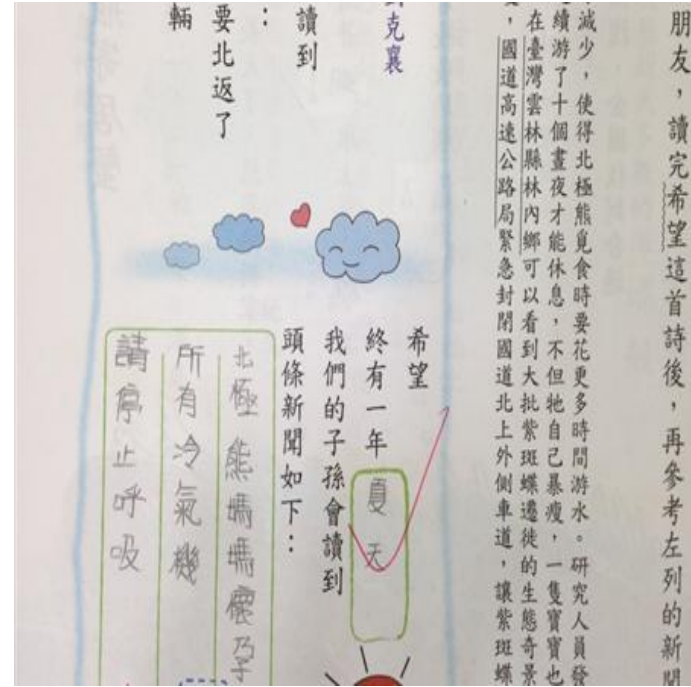 朋友，讀完希望這首詩後，再參考左列的新聞
減少，使得北極熊覓食時要花更多時間游水。研究人員發
續游了十個晝夜才能休息，不但牠自己暴瘦，一隻寶寶也
在臺灣雲林縣林內鄉可以看到大批紫斑蝶遷徙的生態奇景
，國道高速公路局緊急封閉國道北上外側車道，讓紫斑蝶
克襄
讀到
：
要北返了
輛
希望
終有一年夏天
我們的子孫會讀到
頭條新聞如下：
北極熊媽媽懷孕
所有冷氣機
請停止呼吸